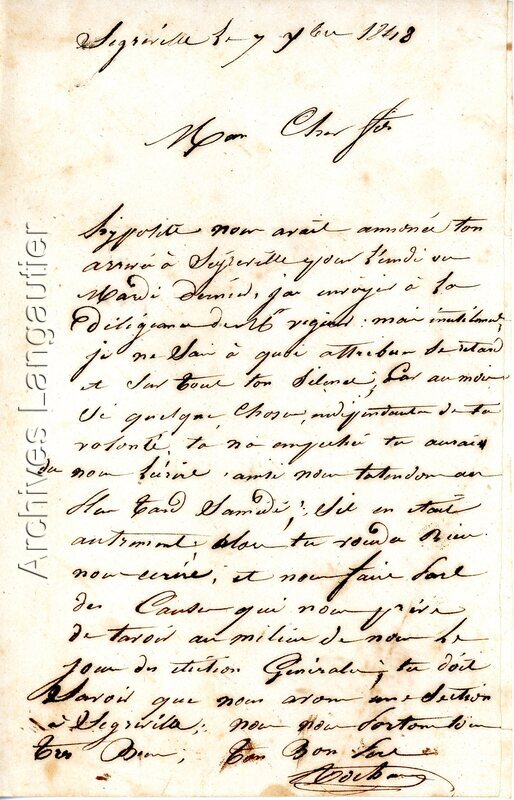 Segréville le 7 xbre 1848
Mon Cher fils
hyppolitte nous avait annoncée ton
arrivé à Segreville pour lundi ou
Mardi dernier, jai envoyer à la
diligeance de St regieu mais inutilement
je ne Sai à quoi attribuer Se retard
et Sur tout ton Silence, Car au moin
Si quelque Chose, indépendante de ta
volonté, ta na empeché tu aurais
du nous Lécrire. ainsi nous tatendons au
plus Tard Samedi, Sil en etait
autrement alors tu voudra Bien
nous ecrire, et nous faire Part
des Causes qui nous prive
de tavoir au milieu de nous le
jour des élection Générale; tu doit
Savoir que nous avons une Section
à Segreville; nous nous portons tous
tres Bien, ton Bon Pere
Archives Langautier